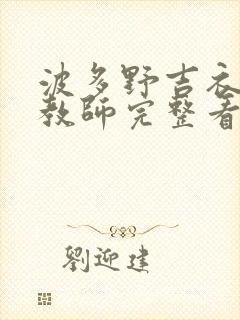 波多野吉衣
教师完整看
劉迎建